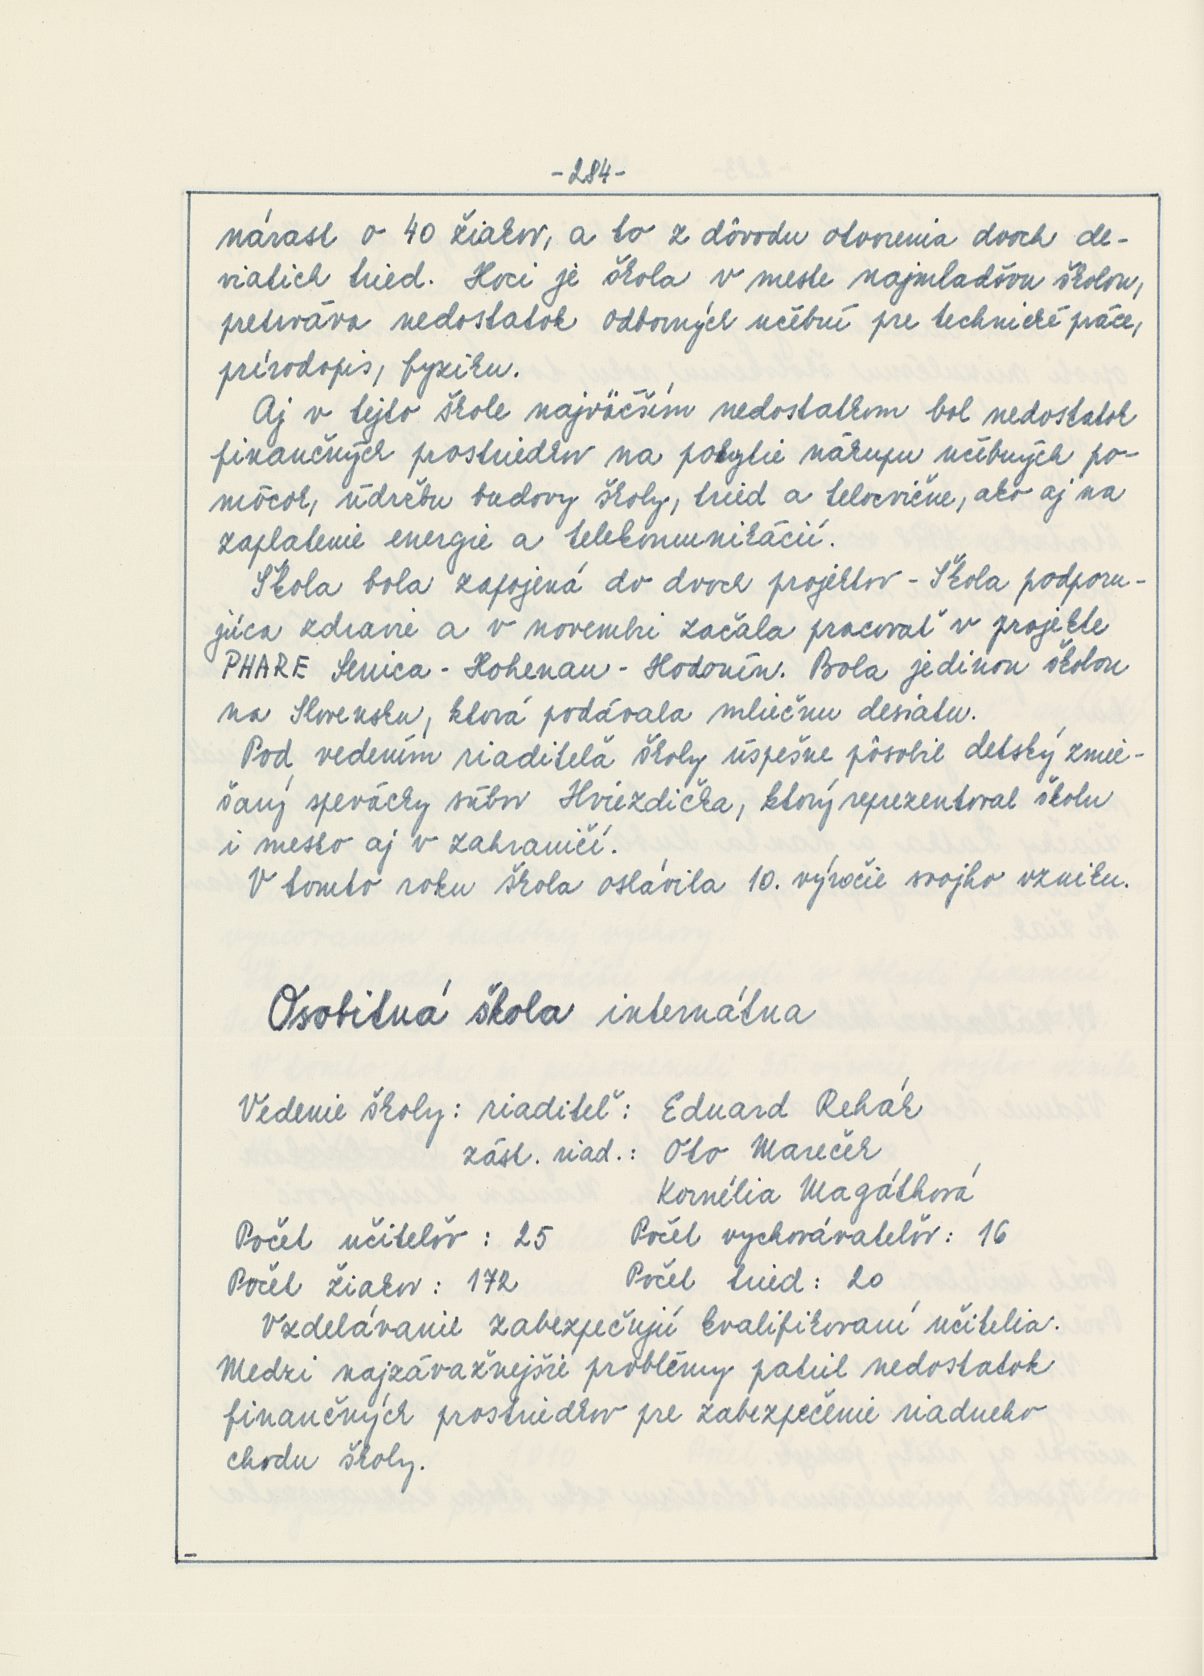 -284-
nárast o 40 žiakov, a to z dôvodu otvorenia dvoch de-
viatich tried. Hoci je škola v meste najmladšou školou,
pretrváva nedostatok odborných učební pre technické práce,
prírodopis, fyziku.
Aj v tejto škole najväčším nedostatkom bol nedostatok
finančných prostriedkov na pokrytie nákupu učebných po-
môcok, údržbu budovy školy, tried a telocvične, ako aj na
zaplatenie energie a telekomunikácií.
Škola bola zapojená do dvoch projektov - Škola podporu-
júca zdravie a v novembri začala pracovať v projekte
PHARE Senica - Hohenau - Hodonín. Bola jedinou školou
na Slovensku, ktorá podávala mliečnu desiatu.
Pod vedením riaditeľa školy úspešne pôsobil detský zmie-
šaný spevácky súbor Hviezdička, ktorý reprezentoval školu
i mesto aj v zahraničí.
V tomto roku škola oslávila 10. výročie svojho vzniku.
Osobitná škola internátna
Vedenie školy: riaditeľ: Eduard Rehák
zást. riad.: Oto Mareček
Kornélia Magáthová
Počet učiteľov : 25 Počet vychovávateľov: 16
Počet žiakov : 172 Počet tried : 20
Vzdelávanie zabezpečujú kvalifikovaní učitelia.
Medzi najzávažnejšie problémy patril nedostatok
finančných prostriedkov pre zabezpečenie riadneho
chodu školy.